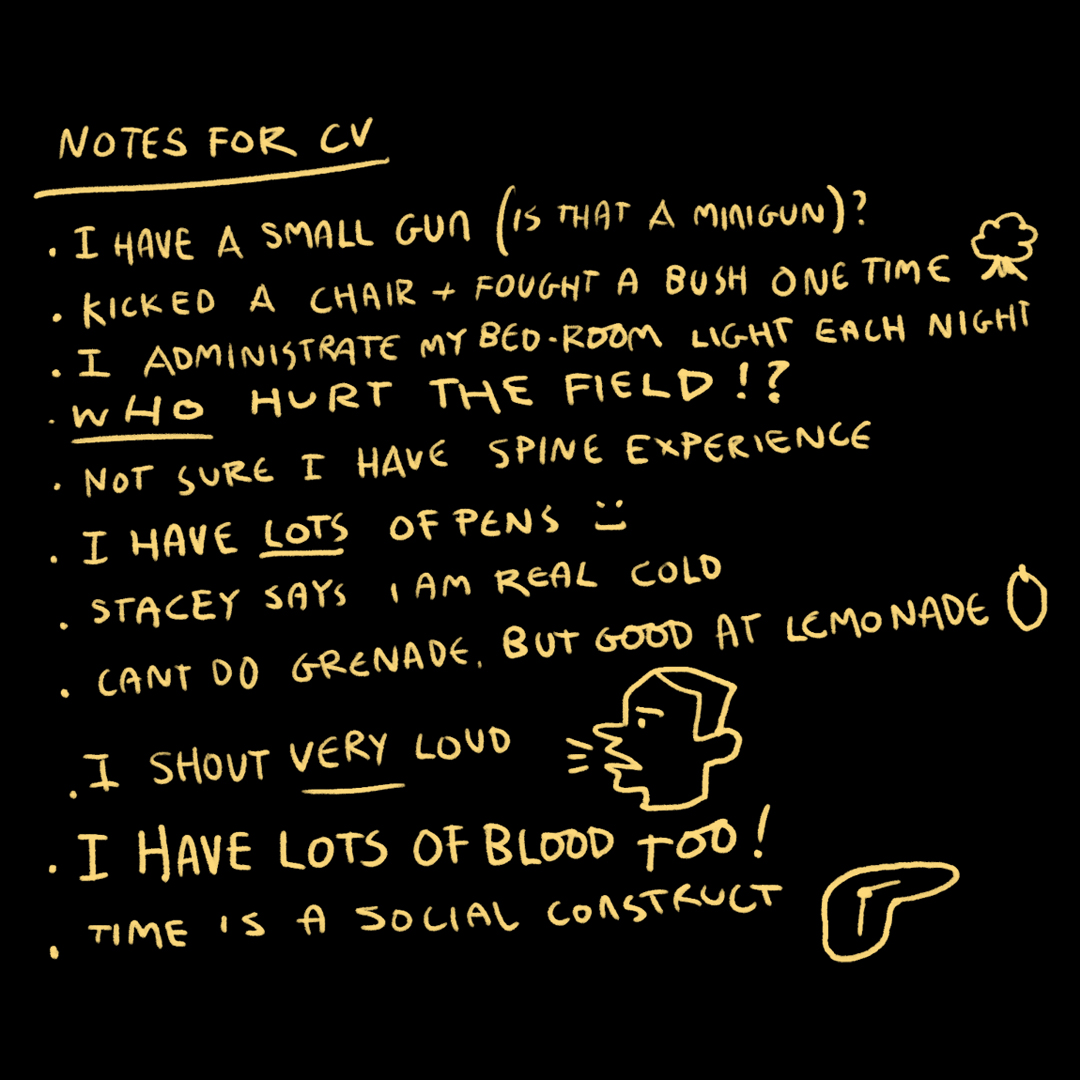 NOTES FOR CV
. I HAVE A SMALL GUN (IS THAT A MINIGUN)?
. KICKED A CHAIR + FOUGHT A BUSH ONE TIME
. I ADMINISTRATE MY BED-ROOM LIGHT EACH NIGHT
. WHO HURT THE FIELD!?
. NOT SURE I HAVE SPINE EXPERIENCE
. I HAVE LOTS OF PENS :)
. STACEY SAYS I AM REAL COLD
. CANT DO GRENADE, BUT GOOD AT LEMONADE
. I SHOUT VERY LOUD
. I HAVE LOTS OF BLOOD TOO!
. TIME IS A SOCIAL CONSTRUCT